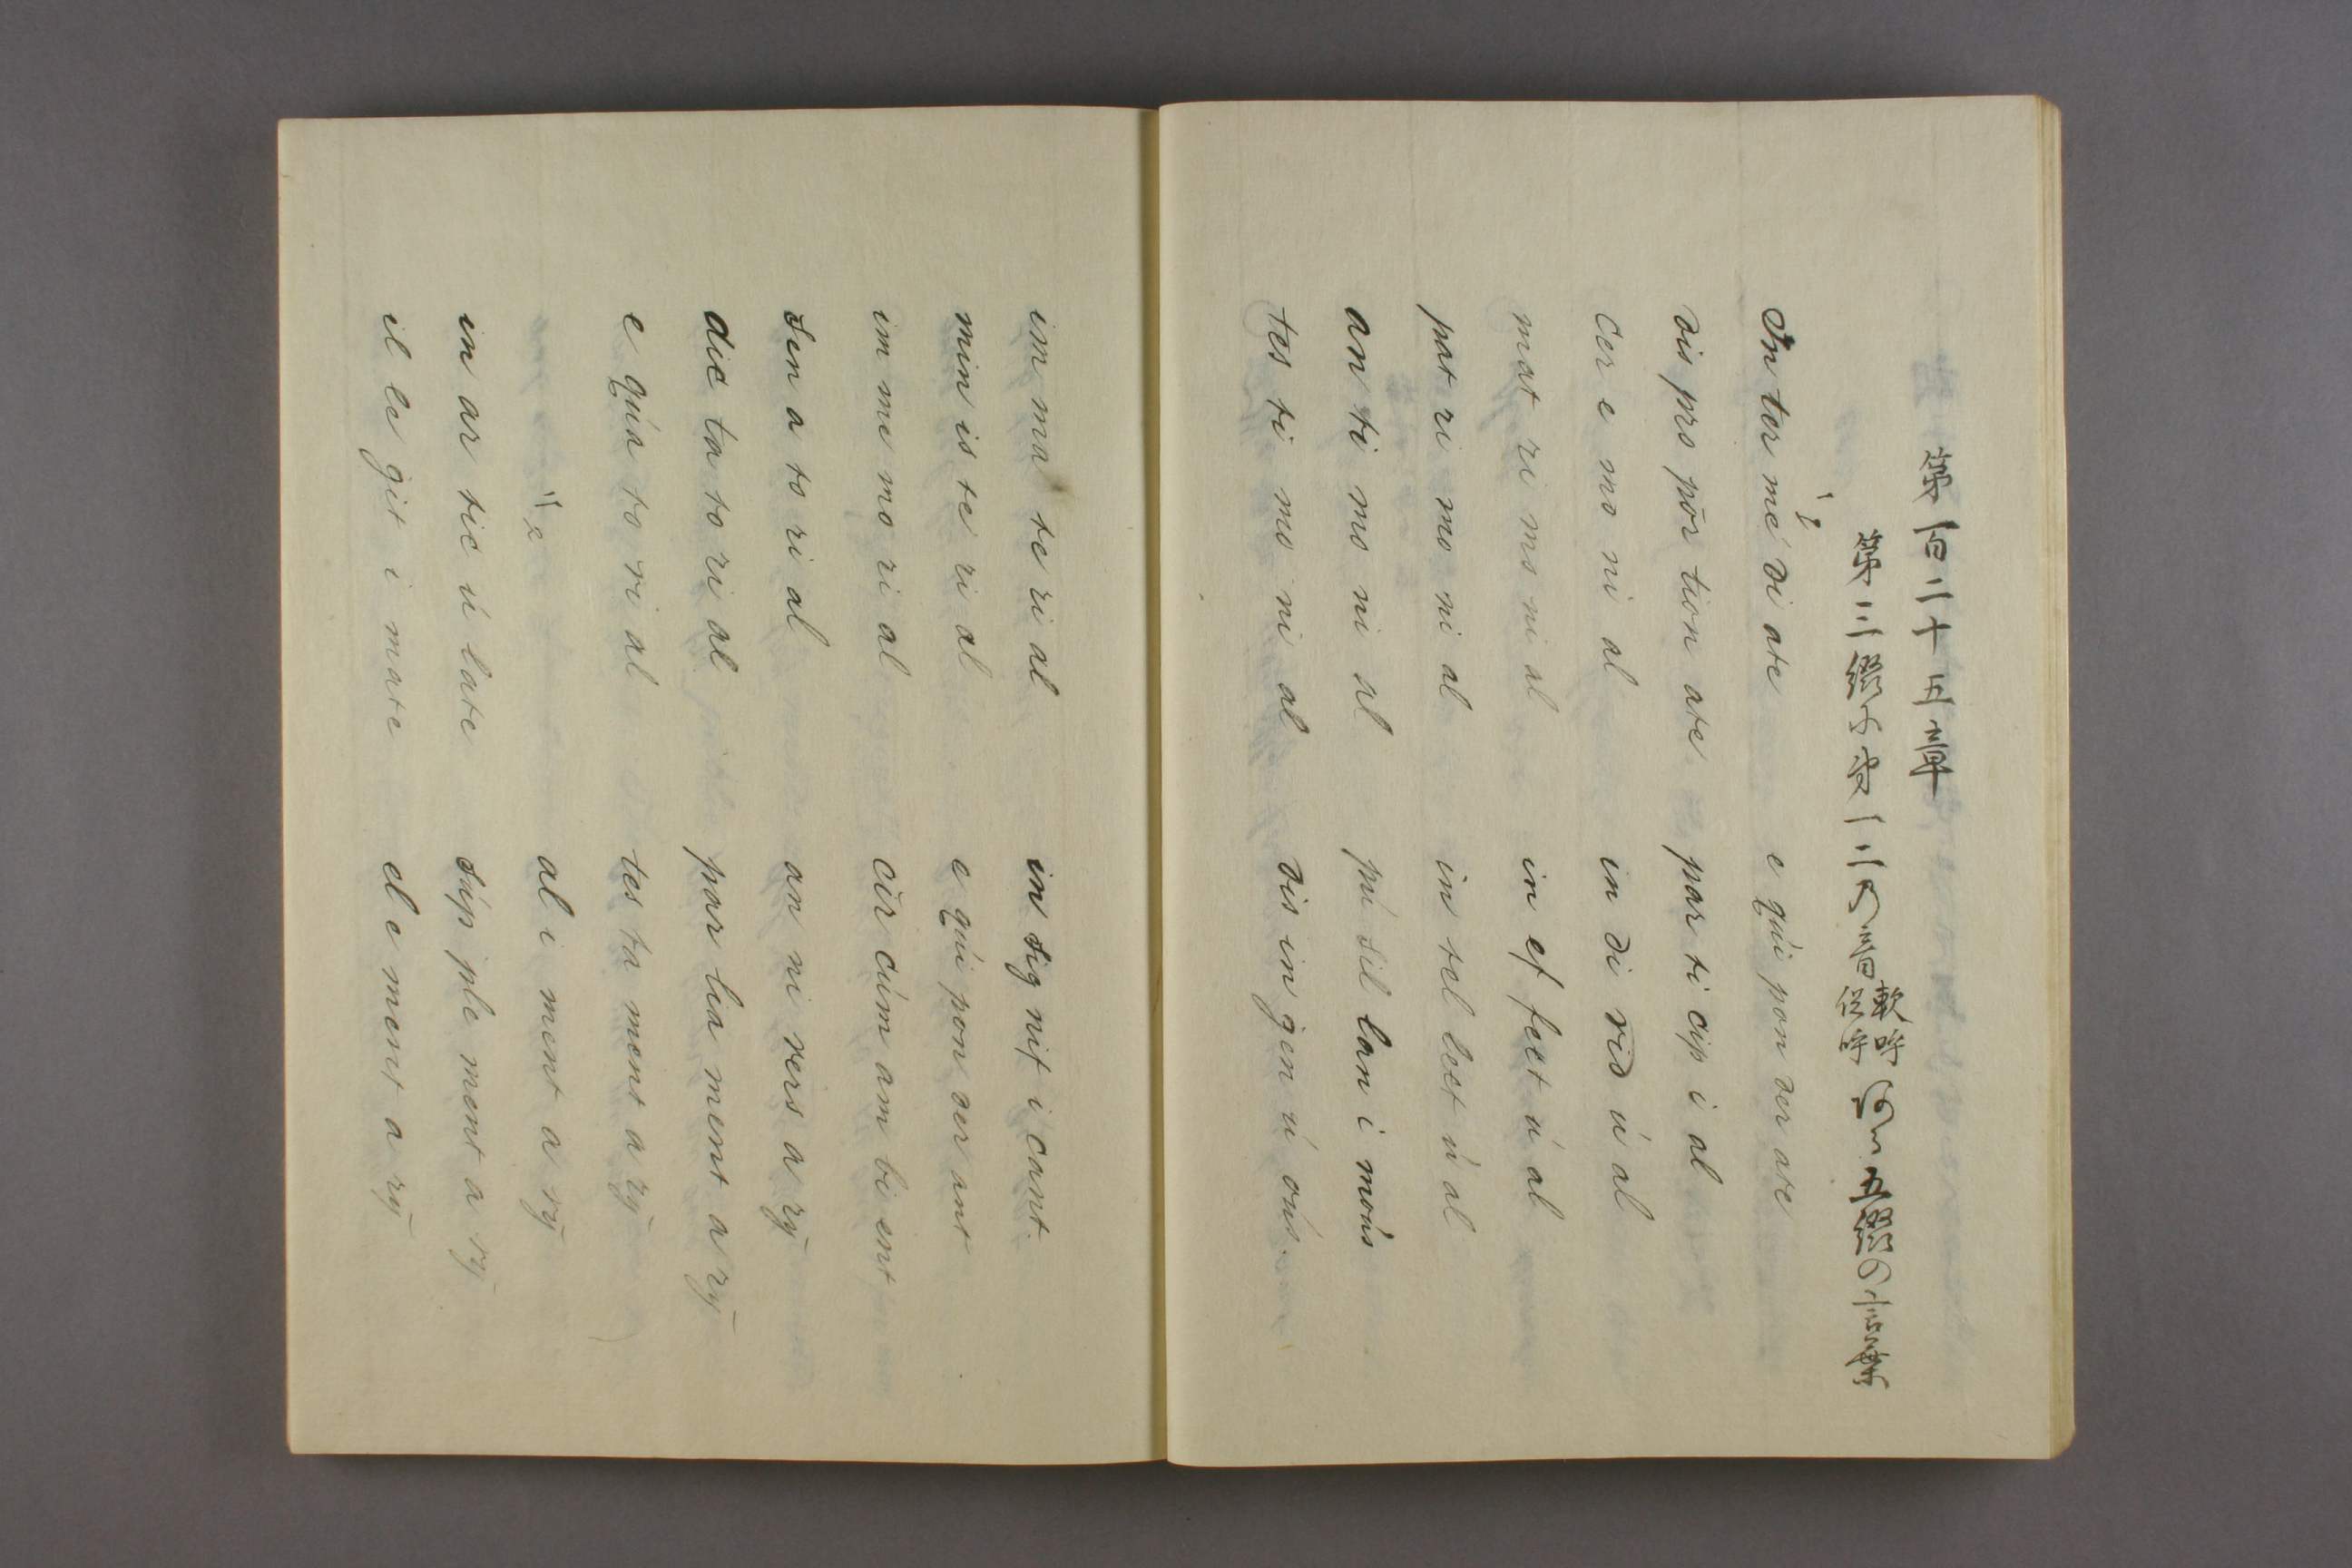 第百二十五章
第三綴
一二乃音
五綴の言葉
In ter me di ate e qui pon der ate
dis pro por tion ate par ti cip i al
cer e mo ni al in di vid u al
mat ri mo ni al in ef fect u al
pat ri mo ni al in tel lect u al
an ti mo ni al pu sil lan i mous
tes ti mo ni al dis in gen u ous.
im ma te ri al in sig nif i cant.
min is te ri al e qui pon der ant
im me mo ri al cir cum am bi ent
sen a to ri al an ni vers a ry
dic ta to ri al par lia ment a ry
e qua to ri al tes ta ment a ry
al i ment a ry
in ar tic u late sup ple ment a ry
il le git i mate el e ment a ry